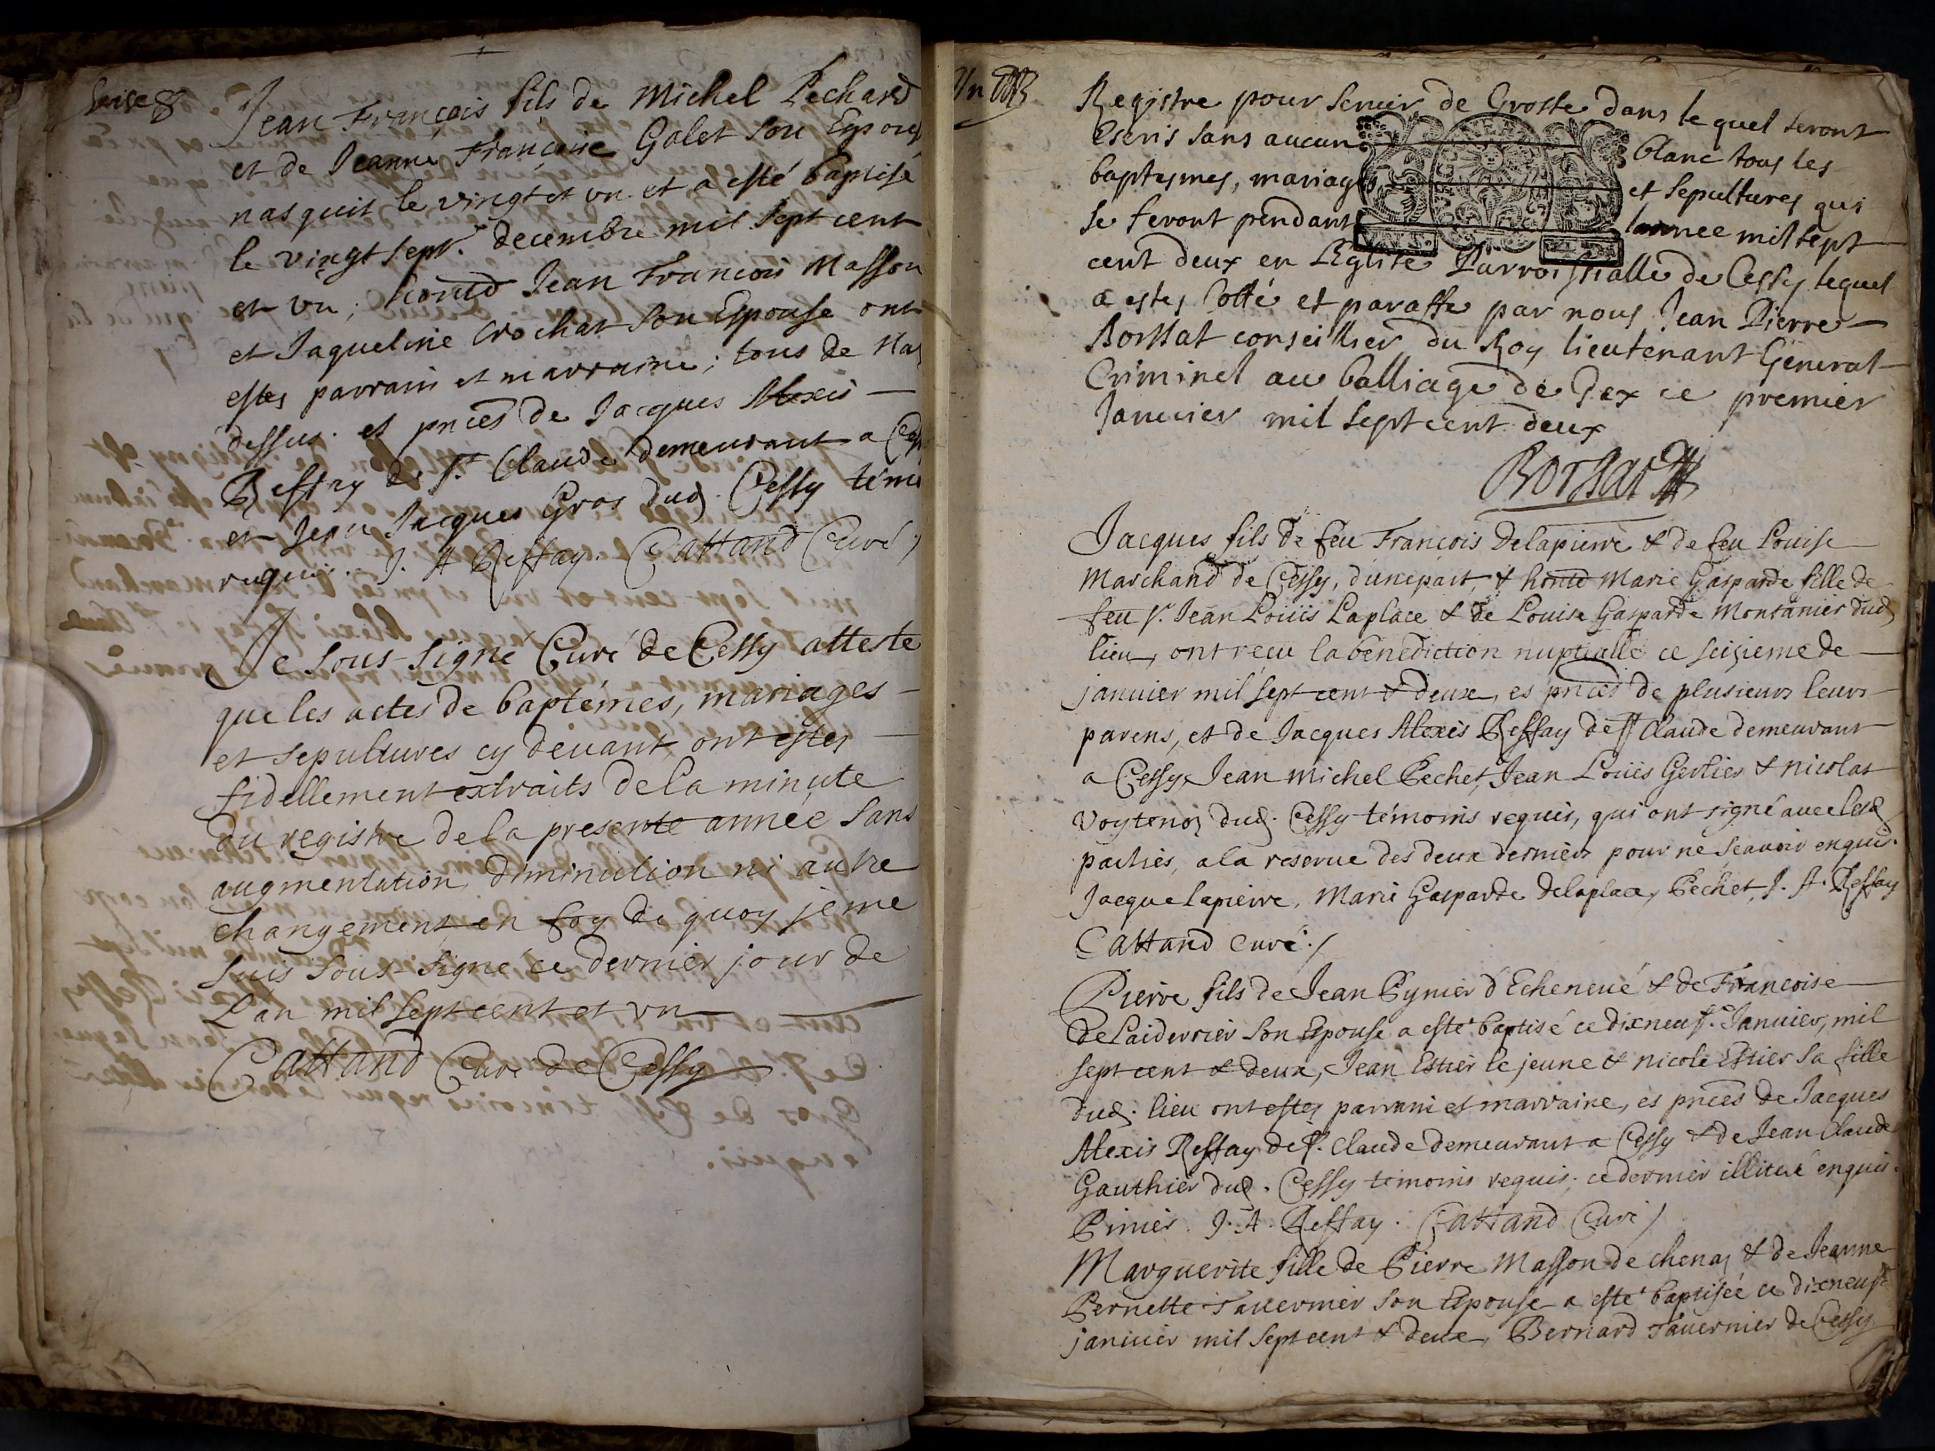 Jean François fils de Michel Pechard
et de Jeanne Françoise Galet son Espouse
nasquit le vingt et un et a esté baptisé
le vingt sept.e decembre mil sept cent
et un; honnd Jean François Masson
et Jaqueline Crochat son Espouse ont
estes parrain et marraine; tous de
dessus. es pnces de Jacques Alexis
Reffay de St. Claude demeurant a Cessy
et Jean Jacques Gros dud. Cessy
requis. J. A Reffay. Cattand Curé /
Je sous-signé Curé de Cessy atteste
que les actes de baptémes, mariages
et sepultures cy devant ont estes
fidellement extraits de la minute
du registre de la presente année sans
augmentation, diminution ni autre
changement en foy de quoy je me
suis sous-signé ce dernier jour de
L'an mil sept cent et un
Cattand Curé de Cessy
Un
Registre pour servir de Grosse dans lequel seront
Escris sans aucun blanc tous les
baptesmes, mariages et sepultures qui
se feront pendant lannee mil sept
cent deux en L'Eglise Parroissialle de Cessy lequel
a estes Cotté et paraffe par nous Jean Pierre
Borssat conseillier du Roy lieutenant General
Criminel au balliage de Gex ce premier
Janvier mil sept cent deux
Borssat
Jacques fils de feu François Delapierre & de feu Louise
Marchand de Cessy, d'une part, & honnd Marie Gasparde fille de
feu Sr. Jean Loüis Laplace & de Louise Gasparde Montanier dud
lieu, ont receu la benediction nuptialle ce seizieme de
janvier mil sept cent & deux, es pnces de plusieurs leurs
parens, et de Jacques Alexis Reffay de St Claude demeurant
a Cessy, Jean Michel Pechet, Jean Loüis Gerlier & nicolas
Voytenoz dud. Cessy témoins requis, qui ont signé avec lesd
parties, a la reserve des deux derniers pour ne sçavoir enquis.
Jacque Lapierre, Marie Gasparde Delaplace, Pechet, J. A. Reffay
Cattand Curé /
Pierre fils de Jean Pynier d'Echenevé & de Françoise
de Laiderrier son Espouse a esté baptisé ce dixneuf.e Janvier, mil
sept cent & deux, Jean Estier le jeune & nicole Estier sa fille
dud. lieu ont estes parrain et marraine, es pnces de Jacques
Alexis Reffay de St. Claude demeurant a Cessy & de Jean Claude
Gauthier dud. Cessy témoins requis. ce dernier illituré enquis.
Pinier. J. A. Reffay. Cattand Curé /
Marguerite fille de Pierre Masson de chenaz & de Jeanne
Pernette Tavernier son Espouse a esté baptisée ce dixneuf.e
janvier mil sept cent & deux, Bernard Tavernier de Cessy